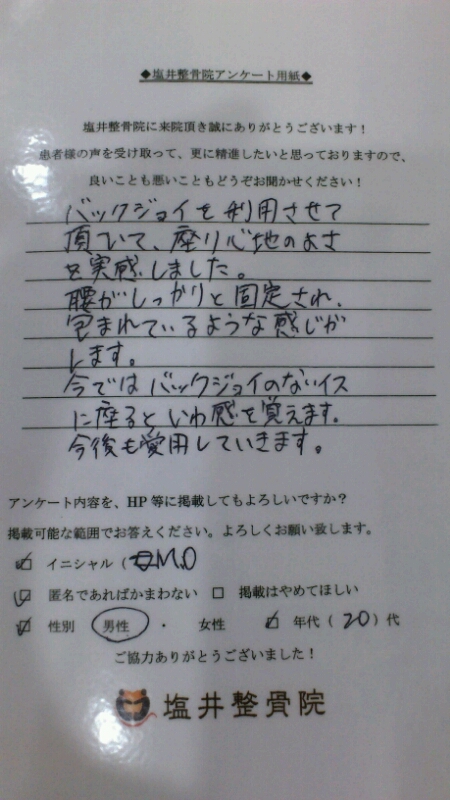 ◆塩井整骨院アンケート用紙◆
塩井整骨院に来院頂き誠にありがとうございます！
患者様の声を受け取って、更に精進したいと思っておりますので、
良いことも悪いこともどうぞお聞かせください！
バックジョイを利用させて
頂いて、座り心地のよさ
を実感しました。
腰がしっかりと固定され、
包まれているような感じが
します。
今ではバックジョイのないイス
に座るといわ感を覚えます。
今後も愛用していきます。
アンケート内容を、HP 等に掲載してもよろしいですか？
掲載可能な範囲でお答えください。よろしくお願い致します。
☑ イニシャル（ M.O
☑ 匿名であればかまわない □ 掲載はやめてほしい
☑ 性別 男性 ・ 女性 ☑ 年代（20）代
ご協力ありがとうございました！
塩井整骨院